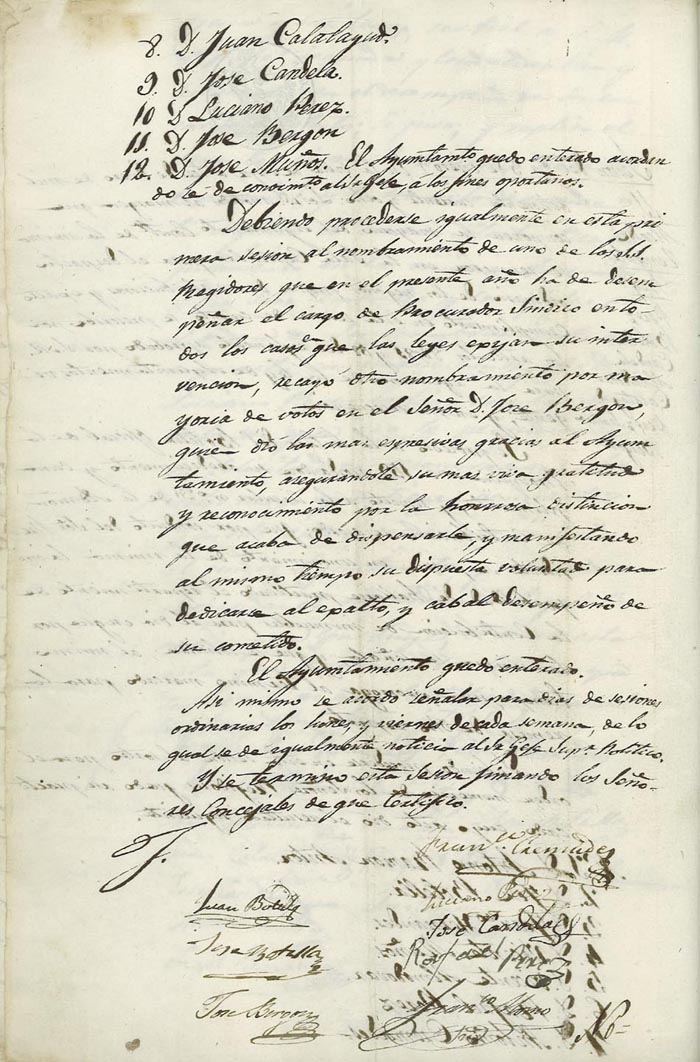 8. D. Juan Calatayud.
9. D. Jose Candela.
10 D Luciano Perez.
11. D. Jose Bergon
12. D. Jose Muños. El Ayuntamto quedo enterado acordan
dose dé conocimto al Sr Gefe, á los fines oportunos.
Debiendo procederse igualmente en esta pri
mera sesion al nombramiento de uno de los SS.
Regidores que en el presente año ha de desem
peñar el cargo de Procurador Sindico en to-
dos los casos que las leyes exijan su inter
vencion, recayó dho nombramiento por ma
yoria de votos en el Señor D. Jose Bergon,
quien dió las mas espresivas gracias al Ayun
tamiento, asegurandole su mas viva gratitud
y reconocimiento por la honrosa distincion
que acaba de dispensarle, y manifestando
al mismo tiempo su dispuesta voluntad para
dedicarse al exalto, y cabal desempeño de
su cometido.
El Ayuntamiento quedó enterado.
Asi mismo se acordo señalar para dias de sesiones
ordinarias los lunes, y viernes de cada semana, de lo
qual se dé igualmente noticia al Sr Gefe Supr Politico.
Y se termino esta sesion firmando los Seño-
res Concejales de que certifico.
Juan Botella
Jose Botella
Jose Bergon
Luciano Perez
Jose Candela
Rafael Perez